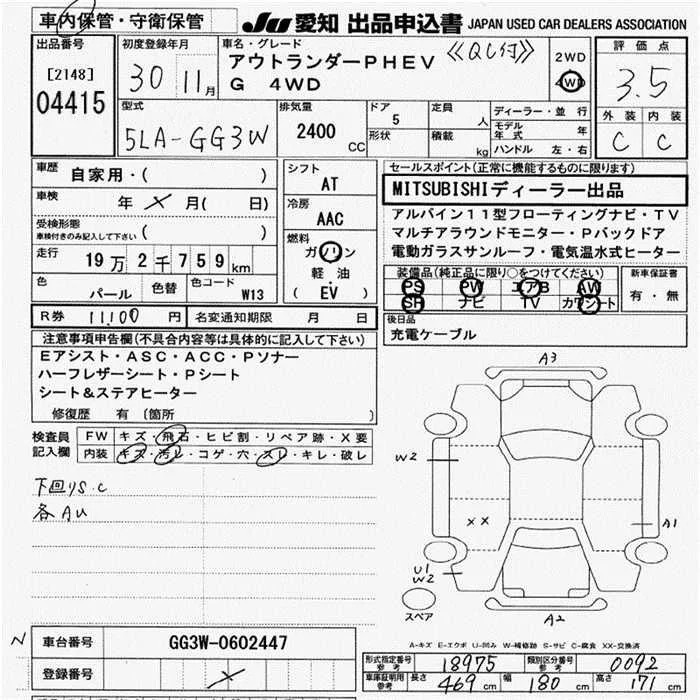 車内保管・守衛保管
JU 愛知 出品申込書 JAPAN USED CAR DEALERS ASSOCIATION
出品番号
[2148]
04415
初度登録年月
30 11月
車名・グレード
アウトランダーPHEV
G 4WD
《QC付》
2WD
4WD
評価点
3.5
外装 内装
C C
型式
5LA-GG3W
排気量
2400
CC
ドア
5
形状
定員
人
積載
kg
ディーラー・並行
モデル年式 年
ハンドル 左・右
車歴
自家用・( )
車検
年 × 月( 日)
受検形態
車検付きのみ記入して下さい ( )
走行
19万2千759km
色
パール
色替
色コード
W13
シフト
AT
冷房
AAC
燃料
ガソリン
軽油
( EV )
セールスポイント(正常に機能するものに限ります)
MITSUBISHIディーラー出品
アルパイン11型フローティングナビ・TV
マルチアラウンドモニター・Pバックドア
電動ガラスサンルーフ・電気温水式ヒーター
装備品(純正品に限り○をつけてください)
PS PW エアB AW
SR ナビ TV カワシート
新車保証書
有・無
後日品
充電ケーブル
R券 11,100 円
名変通知期限 月 日
注意事項申告欄(不具合内容等は具体的に記入して下さい)
Eアシスト・ASC・ACC・Pソナー
ハーフレザーシート・Pシート
シート&ステアヒーター
修復歴 有 〔箇所 〕
検査員
記入欄
FW キズ・飛石・ヒビ割・リペア跡・X要
内装 キズ・汚レ・コゲ・穴・スレ・キレ・破レ
下回りS.C
各AU
A3
W2
XX
A1
U1
W2
スペア
A2
N
車台番号
GG3W-0602447
登録番号
×
A-キズ E-エクボ U-凹み W-補修跡 S-サビ C-腐食 XX-交換済
形式指定番号
参考
18975
類別区分番号
参考
0092
車庫証明用
参考
長さ 469 cm
幅 180 cm
高さ 171 cm